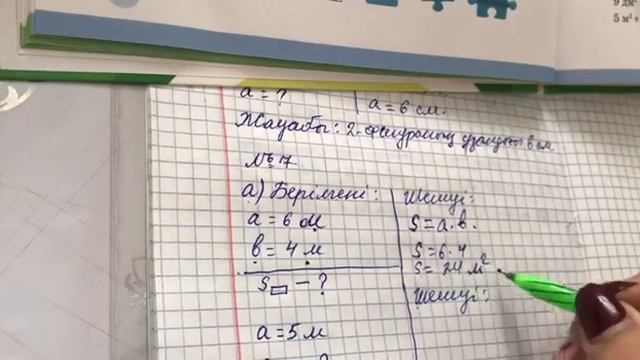 9 дм²
5 м²
a = ?
a = 6 см.
Жауабы: 2-фигураның ұзындығы 6 см
№ 17.
а) Берілгені:
a = 6 м
b = 4 м
S▭ - ?
a = 5 м
Шешуі:
S = a·b.
S = 6·4
S = 24 м²
Шешуі: